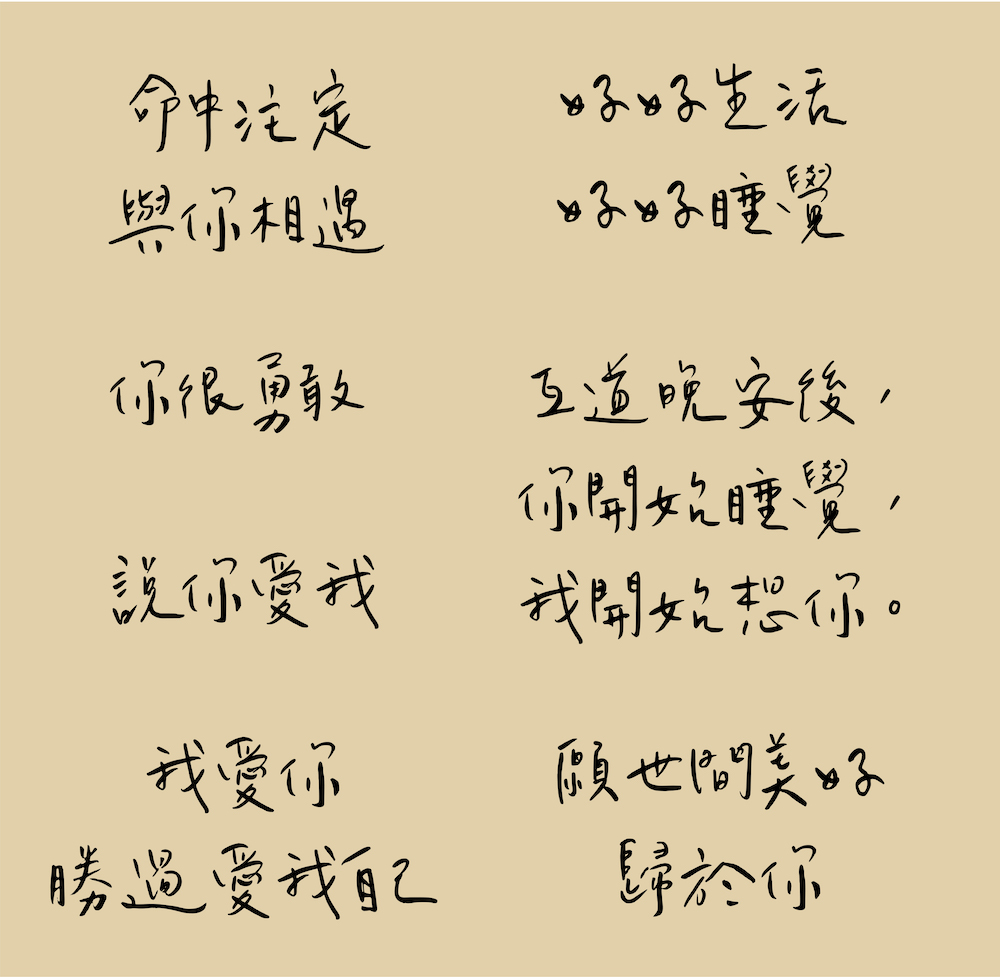 命中注定
與你相遇
你很勇敢
說你愛我
我愛你
勝過愛我自己
好好生活
好好睡覺
互道晚安後，
你開始睡覺，
我開始想你。
願世間美好
歸於你